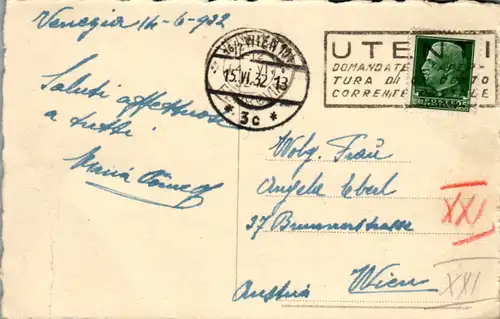 Venezia 14-6-932
Saluti affettuosi
a tutti
Maria
WIEN 101
15.VI.32 13
* 3c *
UTENTI
DOMANDATE
TURA DI
CORRENTE
Wolg. Frau
Angela Eberl
37 Brunnerstrasse
XXI
Wien
Austria
XXI